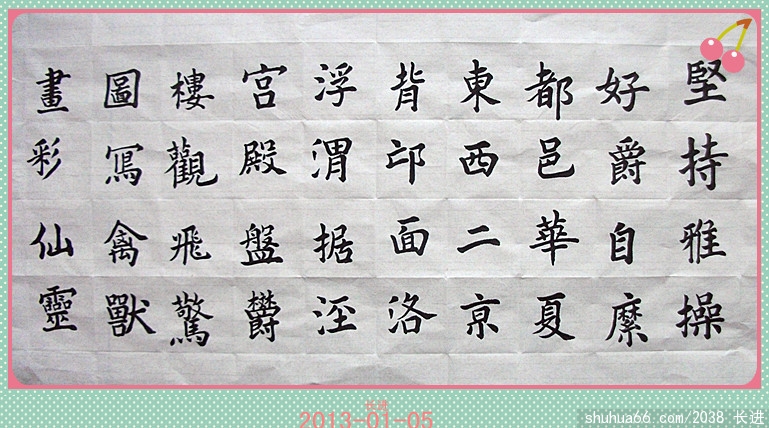 堅持雅操
好爵自縻
都邑華夏
東西二京
背邙面洛
浮渭据泾
宮殿盤欝
樓觀飛驚
圖寫禽獸
畫彩仙靈
长进
2013-01-05
shuhua66.com/2038 长进